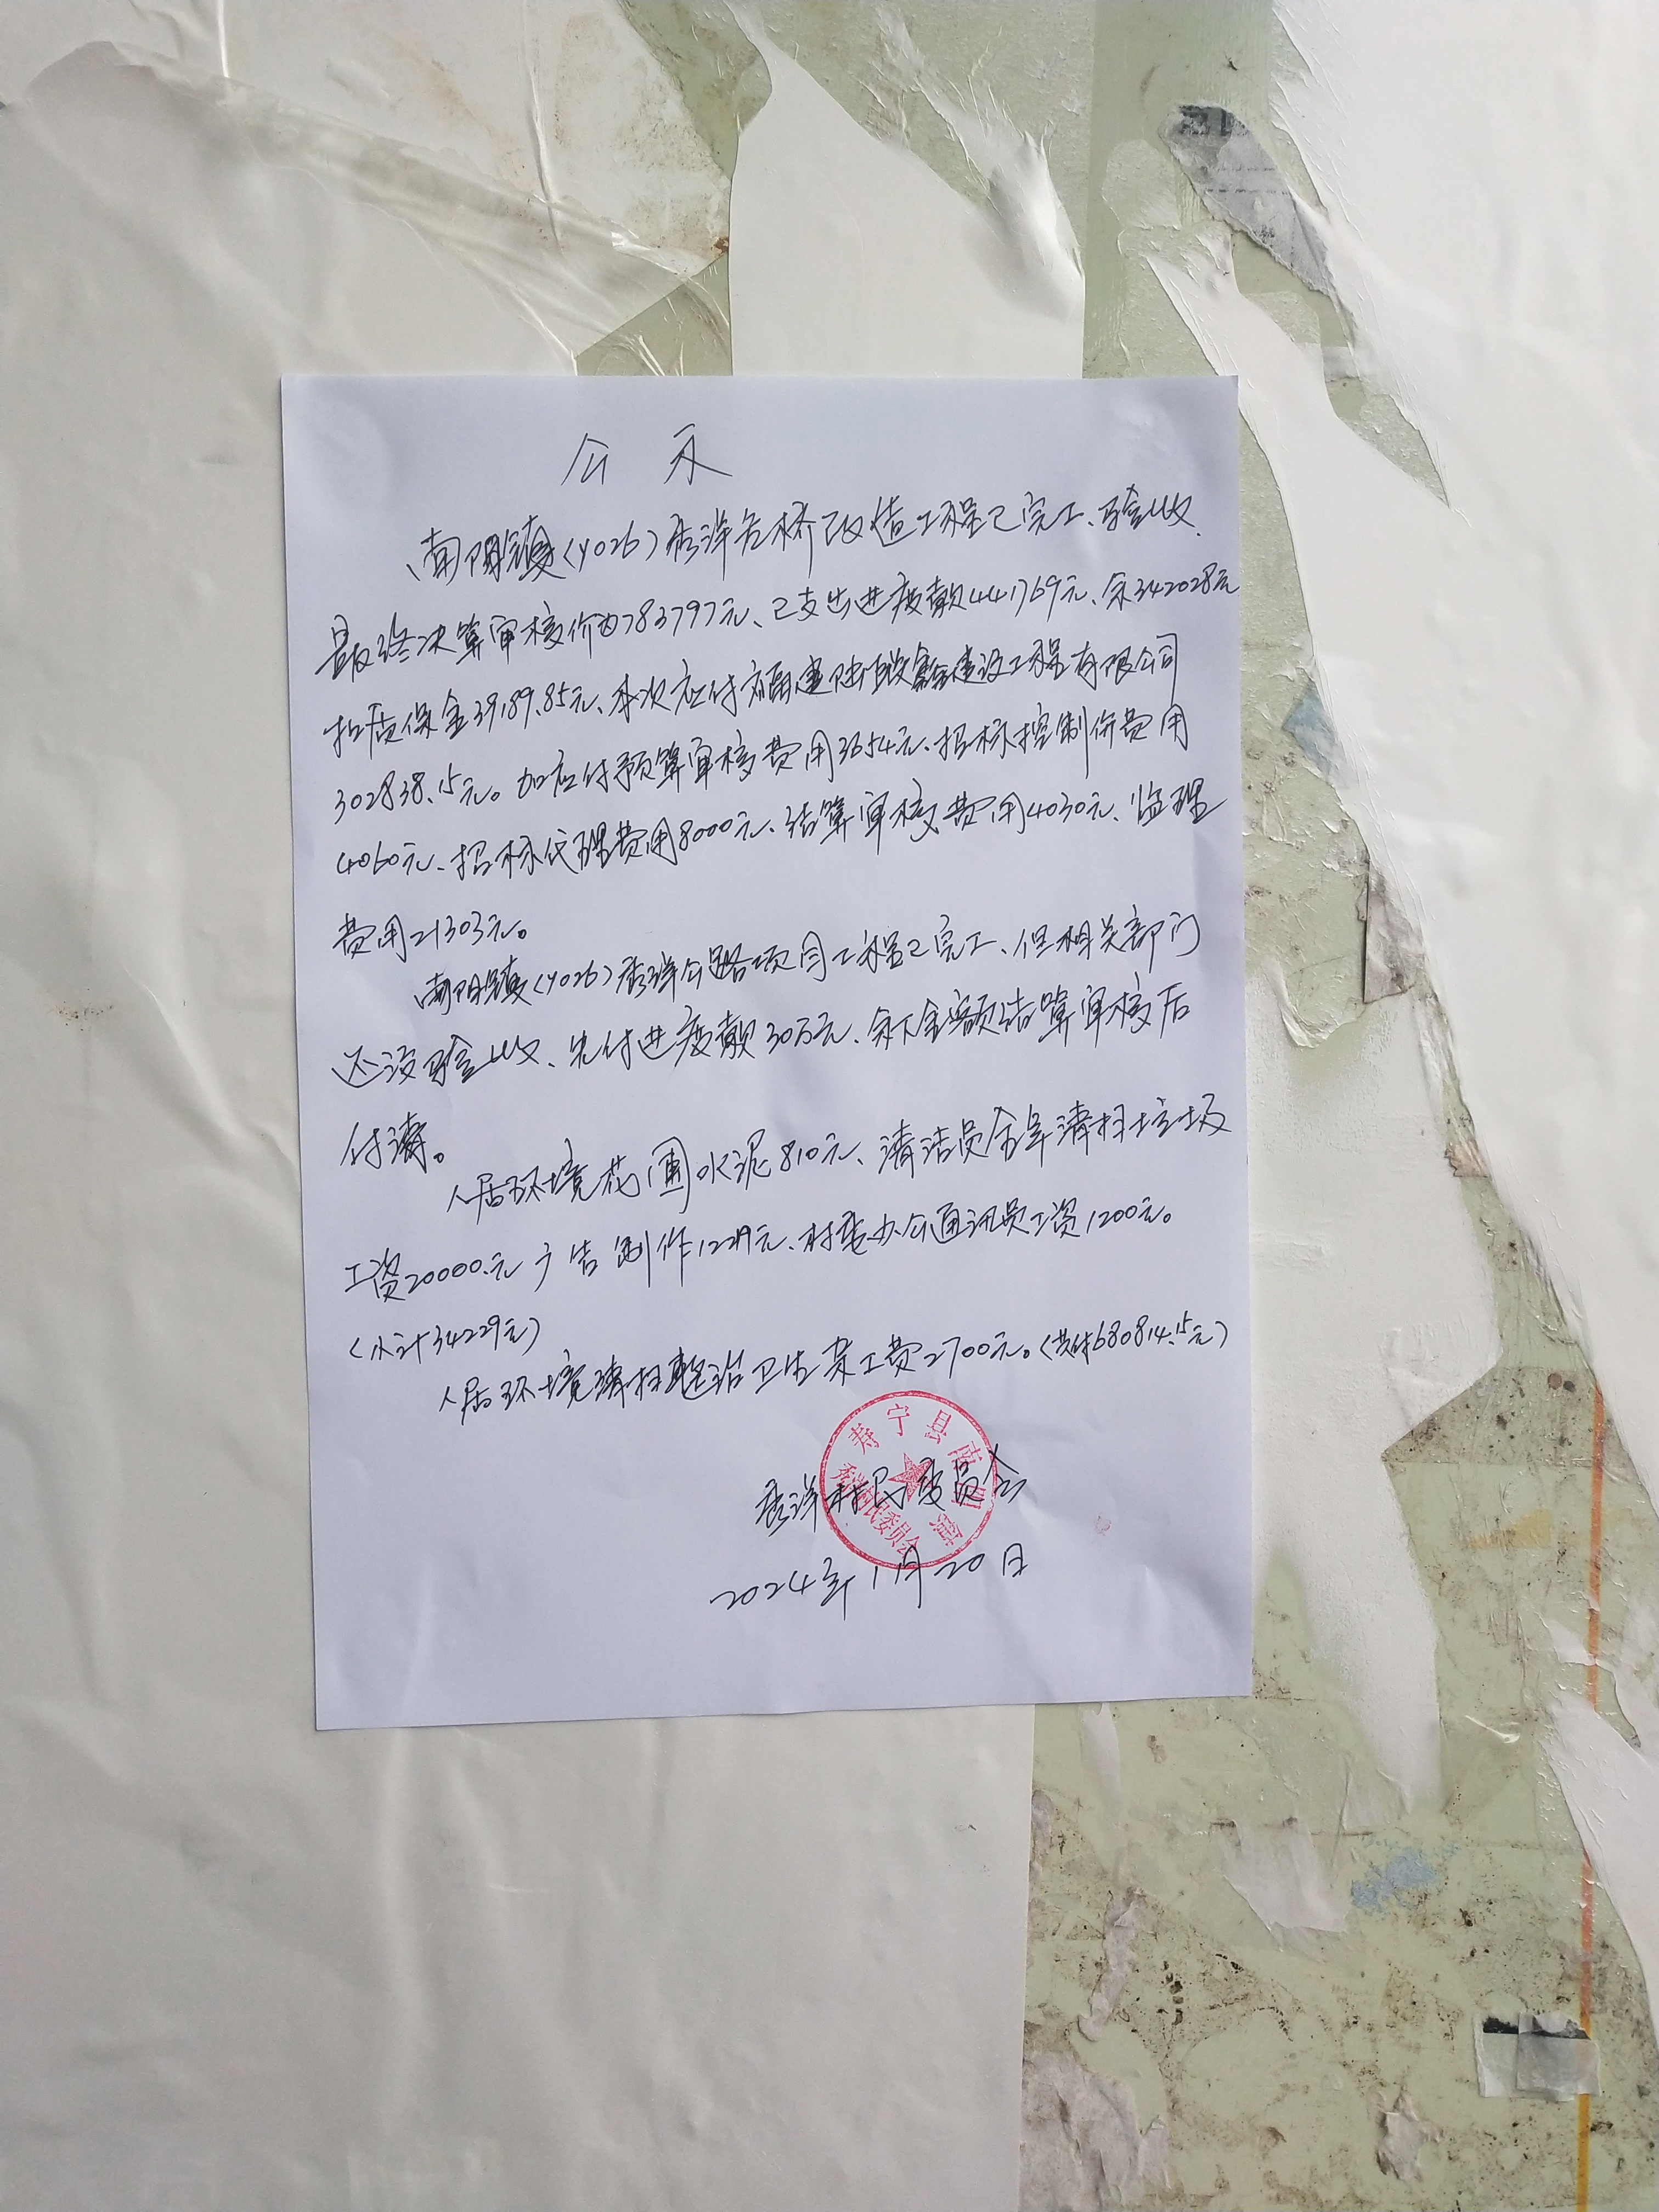 公示
南阳镇(Y026)秀洋危桥改造工程已完工、验收
最终决算审核价为783797元、已支出进度款441769元、余342028元
扣质保金39189.85元、本次应付福建建设工程有限公司
302838.15元。加应付预算审核费用3654元、招标控制价费用
4060元、招标代理费用8000元、结算审核费用4030元、监理
费用21303元。
南阳镇(Y026)秀洋公路项目工程已完工、但相关部门
还没验收、先付进度款30万元、余下金额结算审核后
付清。
人居环境花圃水泥810元、清洁员全年清扫垃圾
工资20000元广告制作1229元、村委办公通讯员工资1200元。
(小计34229元)
人居环境清扫整治卫生杂工费2700元。(共付680814.15元)
秀洋村民委员会
2024年11月20日
寿宁县南阳镇
秀洋村民委员会